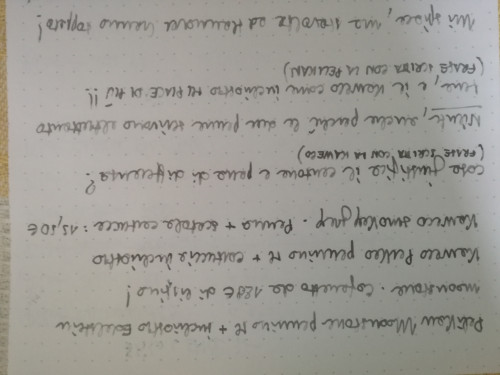 Pelikan Moonstone pennino M + inchiostro Edelstein
moonstone. Cofanetto da 128€ di listino!
Kaweco Perkeo pennino M + cartuccia inchiostro
Kaweco smokey grey. Penna + scatola cartucce: 15,50€
cosa giustifica il centone e passa di differenza?
(FRASE SCRITTA CON LA KAWECO)
Niente, anche perché le due penne scrivono altrettanto
bene, e il Kaweco come inchiostro mi piace di più!!
(FRASE SCRITTA CON LA PELIKAN)
Mi spiace, ma stavolta ad Hannover hanno toppato!